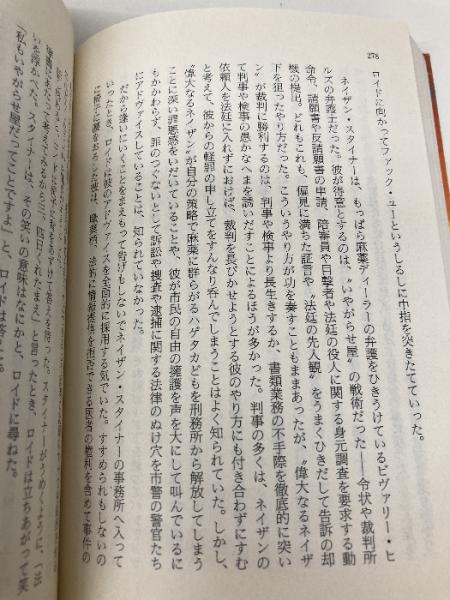 278
ロイドに向かってファック・ユーというしるしに中指を突きたてていった。
ネイザン・スタイナーは、もっぱら麻薬ディーラーの弁護をひきうけているビヴァリー・ヒ
ルズの弁護士だった。彼が得意とするのは、〝いやがらせ屋〟の戦術だった――令状や裁判所
命令、請願書や反請願書の申請、陪審員や目撃者や法廷の役人に関する身元調査を要求する動
機の提出。どれもこれも、偏見に満ちた証言や〝法廷の先入観〟をうまくひきだして告訴の却
下を狙ったやり方だった。こういうやり方が功を奏すこともままあったが、〝偉大なるネイザ
ン〟が裁判に勝利するのは、判事や検事より長生きするか、書類業務の不手際を徹底的に突い
て判事や検事の愚かなへまを誘いだすことによるほうが多かった。判事の多くは、ネイザンの
依頼人を法廷に入れずにおけば、裁判を長びかせようとする彼のやり方にも付き合わずにすむ
と考えて、彼からの軽罪の申し立てをすんなり呑んでしまうことはよく知られていた。しかし、
〝偉大なるネイザン〟が自分の策略で麻薬に群らがるハゲタカどもを刑務所から解放してしまう
ことに深い罪悪感をいだいていることや、彼が市民の自由の擁護を声を大にして叫んでいるに
もかかわらず、罪のつぐないとして訴訟や捜査や逮捕に関する法律のぬけ穴を市警の警官たち
にアドヴァイスしていることは、知られていなかった。
だから逢いにいくことをまえもって告げもしないでネイザン・スタイナーの事務所へ入って
いったとき、ロイドは彼のアドヴァイスを全面的に採用する気でいた。すすめられもしないの
に椅子に腰をおろした彼は、職業柄、法的に情報提供を拒否できる医者の権利を含めて事件の
椅子に背をもたせかけて答えを待った。スタイナーが
いを浮かべ、スタイナーは、その笑いの意味はなにかと、ロイドに尋ねた。
「私もいやがらせ屋だってことですよ」と、ロイドは答えた。